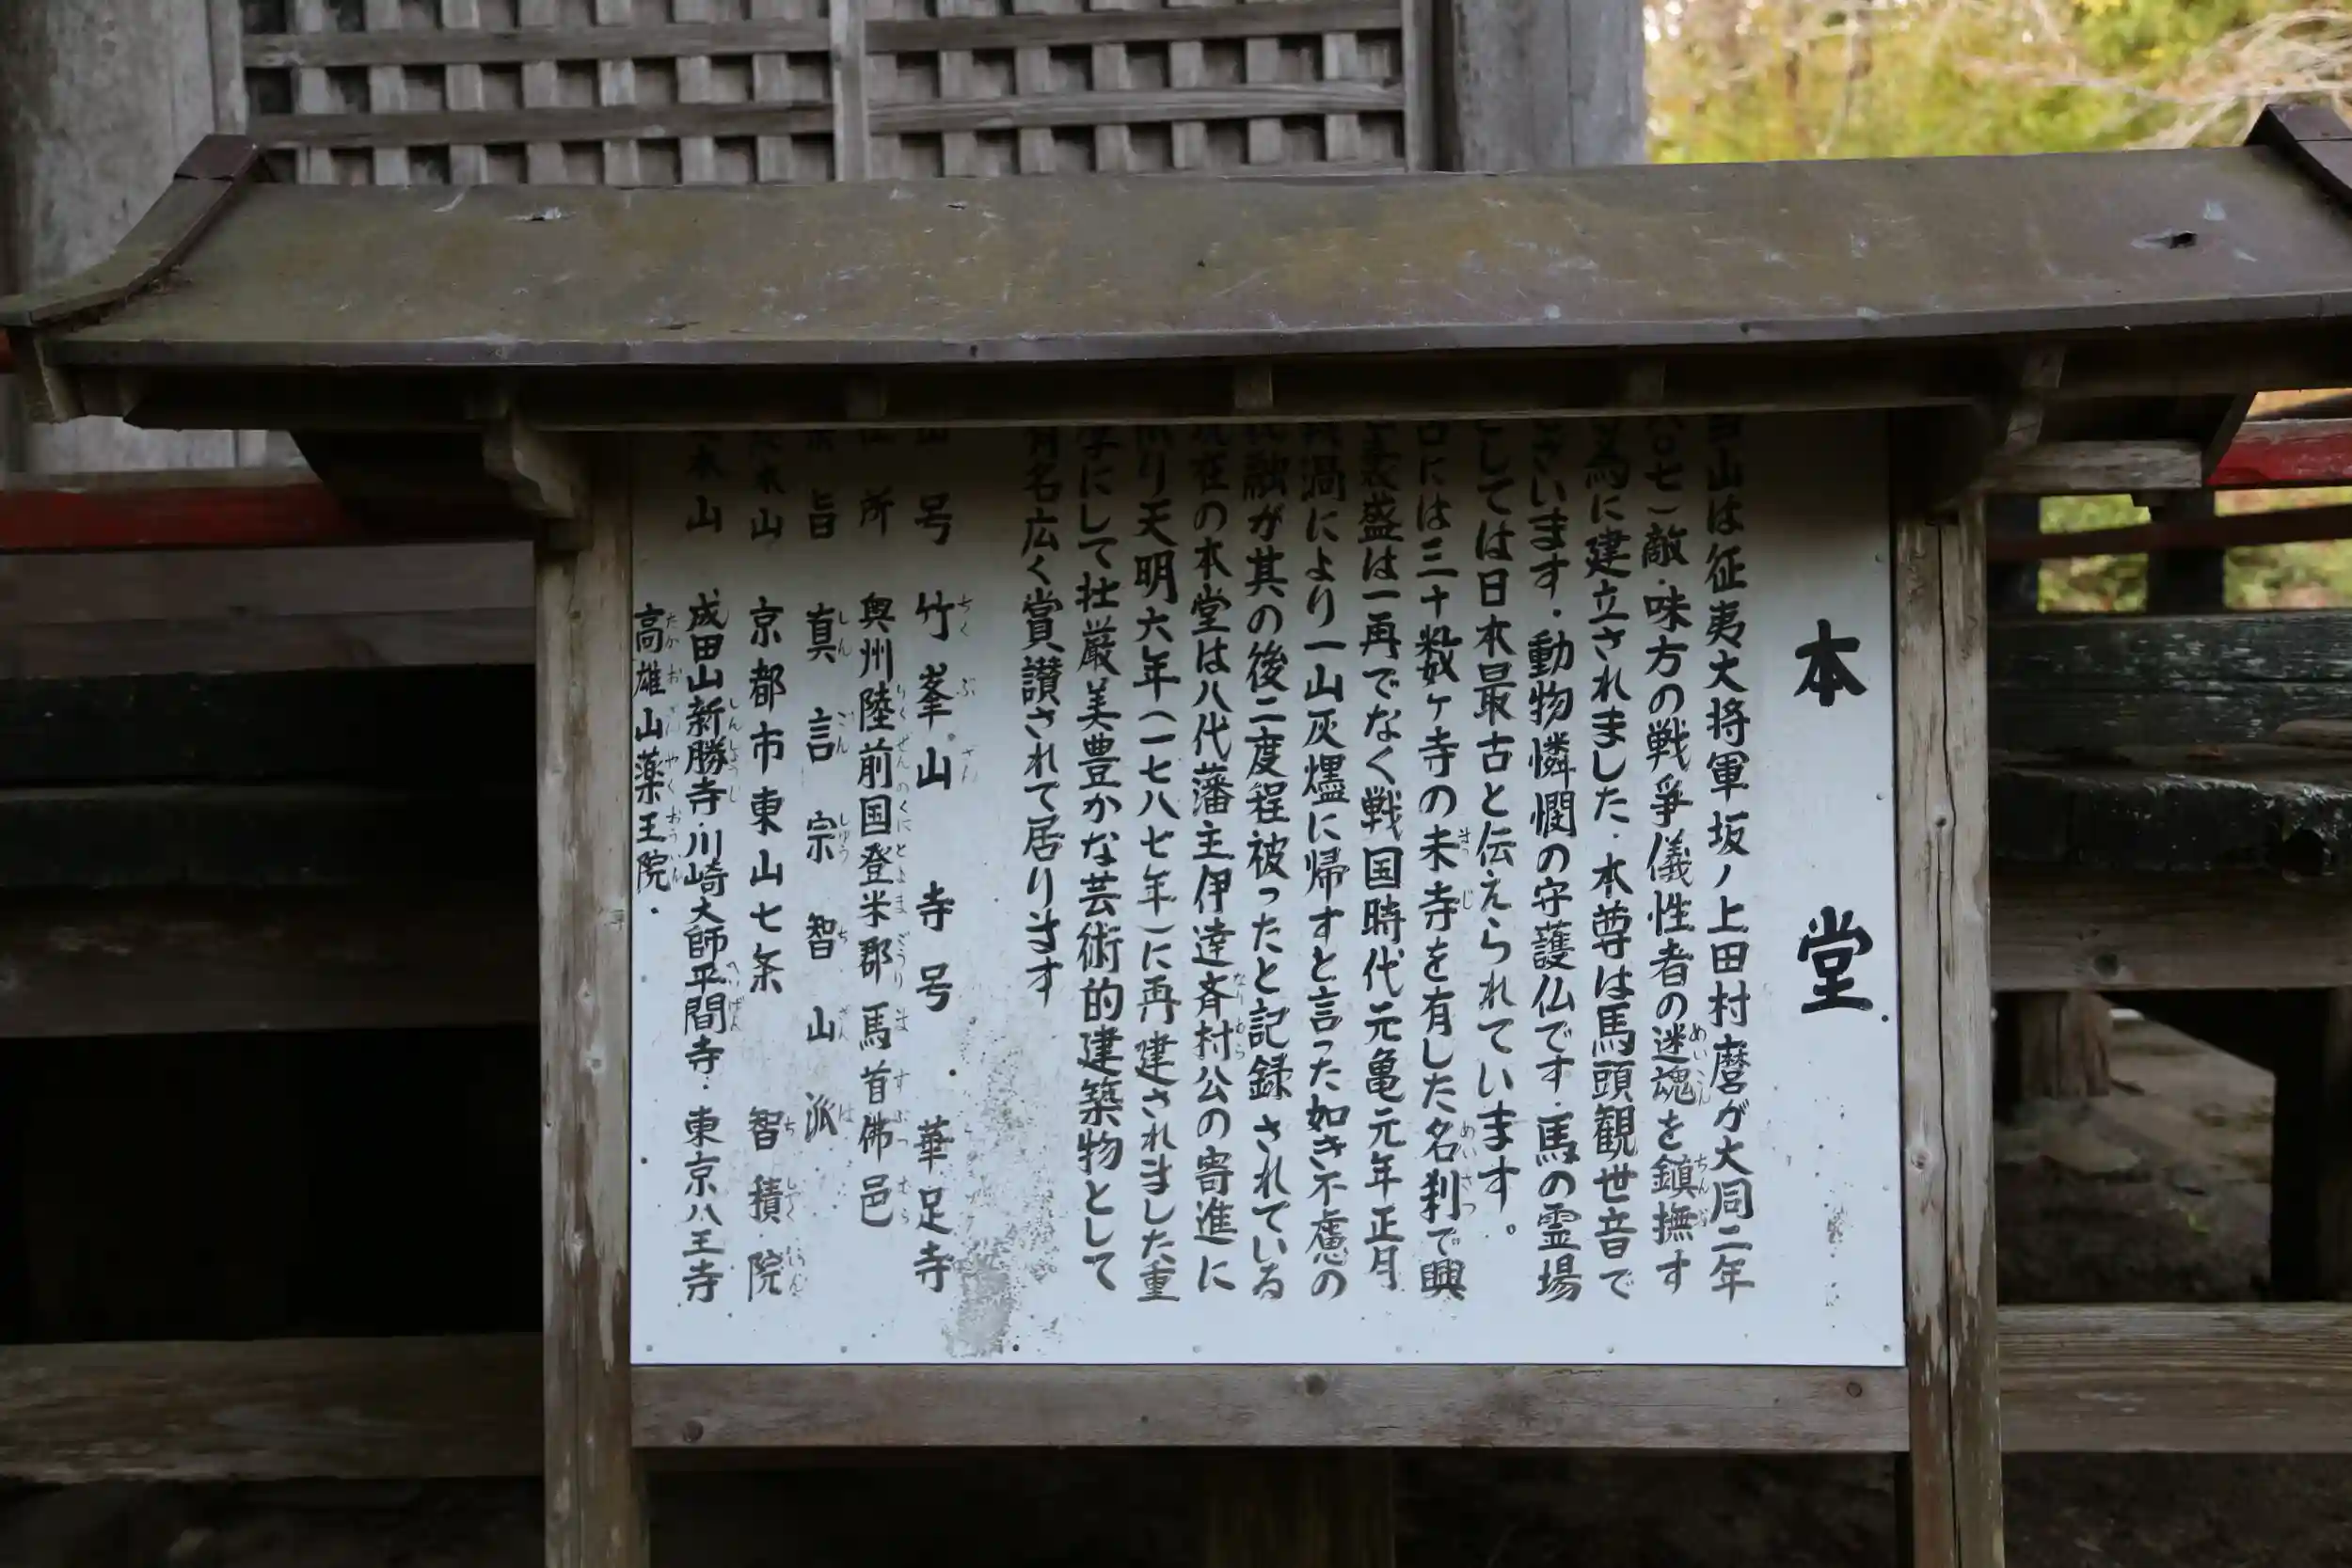 本堂
当山は征夷大将軍坂ノ上田村麿が大同二年
八〇七)敵・味方の戦争儀性者の迷魂を鎮撫す
馬に建立されました・本尊は馬頭観世音で
ざいます・動物憐憫の守護仏です・馬の霊場
しては日本最古と伝えられています。
には三十数ヶ寺の末寺を有した名刹で興
衰盛は一再でなく戦国時代元亀元年正月
渦により一山灰燼に帰すと言った如き不慮の
融が其の後二度程被ったと記録されている
在の本堂は八代藩主伊達斉村公の寄進に
り天明六年(一七八七年)に再建されました重
にして壮厳美豊かな芸術的建築物として
名広く賞讃されて居ります
山号 竹峯山 寺号・華足寺
住所 奥州陸前国登米郡馬首佛邑
旨 真言宗智山派
本山 京都市東山七条 智積院
本山 成田山新勝寺・川崎大師平間寺・東京八王寺
高雄山薬王院・